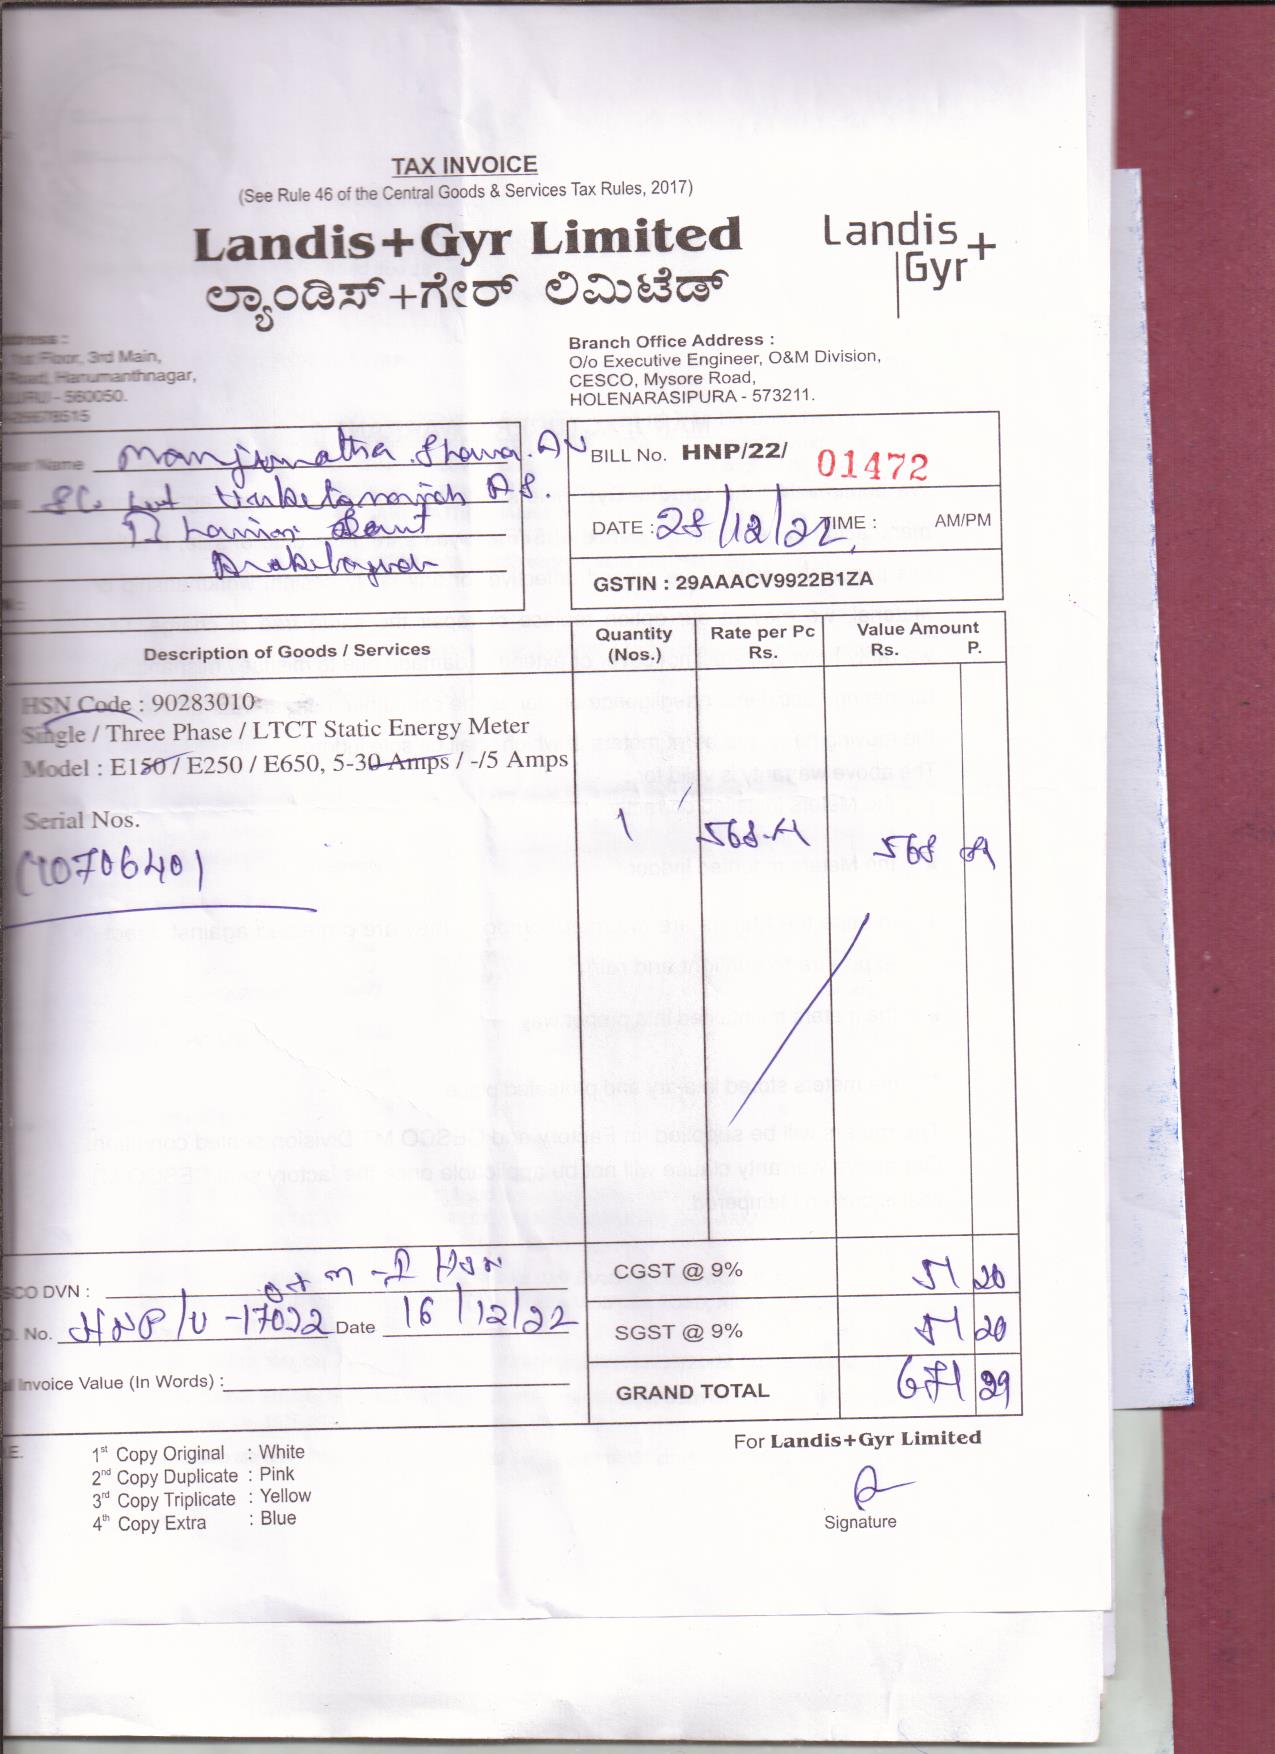 TAX INVOICE
(See Rule 46 of the Central Goods & Services Tax Rules, 2017)
Landis+Gyr Limited
ಲ್ಯಾಂಡಿಸ್+ಗೇರ್ ಲಿಮಿಟೆಡ್
Landis
Gyr+
Floor, 3rd Main,
Road, Hanumanthnagar,
- 560050.
Branch Office Address :
O/o Executive Engineer, O&M Division,
CESCO, Mysore Road,
HOLENARASIPURA - 573211.
Name
BILL No. HNP/22/ 01472
DATE : 28/12/22, TIME : AM/PM
GSTIN : 29AAACV9922B1ZA
Description of Goods / Services
Quantity (Nos.)
Rate per Pc Rs.
Value Amount Rs. P.
HSN Code : 90283010
Single / Three Phase / LTCT Static Energy Meter
Model : E150 / E250 / E650, 5-30 Amps / -/5 Amps
Serial Nos.
1
568
DVN :
CGST @ 9% 51 20
No. HNP/U-17022 Date 16/12/22
SGST @ 9% 51 20
Invoice Value (In Words) :
GRAND TOTAL 671 29
1st Copy Original : White
2nd Copy Duplicate : Pink
3rd Copy Triplicate : Yellow
4th Copy Extra : Blue
For Landis+Gyr Limited
Signature